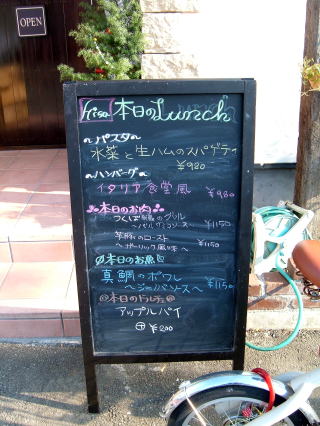 OPEN
hisa 本日のLunch
~パスタ~
水菜と生ハムのスパゲティ
¥980
~ハンバーグ~
イタリア食堂風 ¥980
本日のお肉
つくば鶏のグリル
~バルサミコソース~ ¥1150
芋豚のロースト
~ガーリック風味~ ¥1150
本日のお魚
真鯛のポワレ
~ジェノバソース~ ¥1150
本日のドルチェ
アップルパイ
¥200